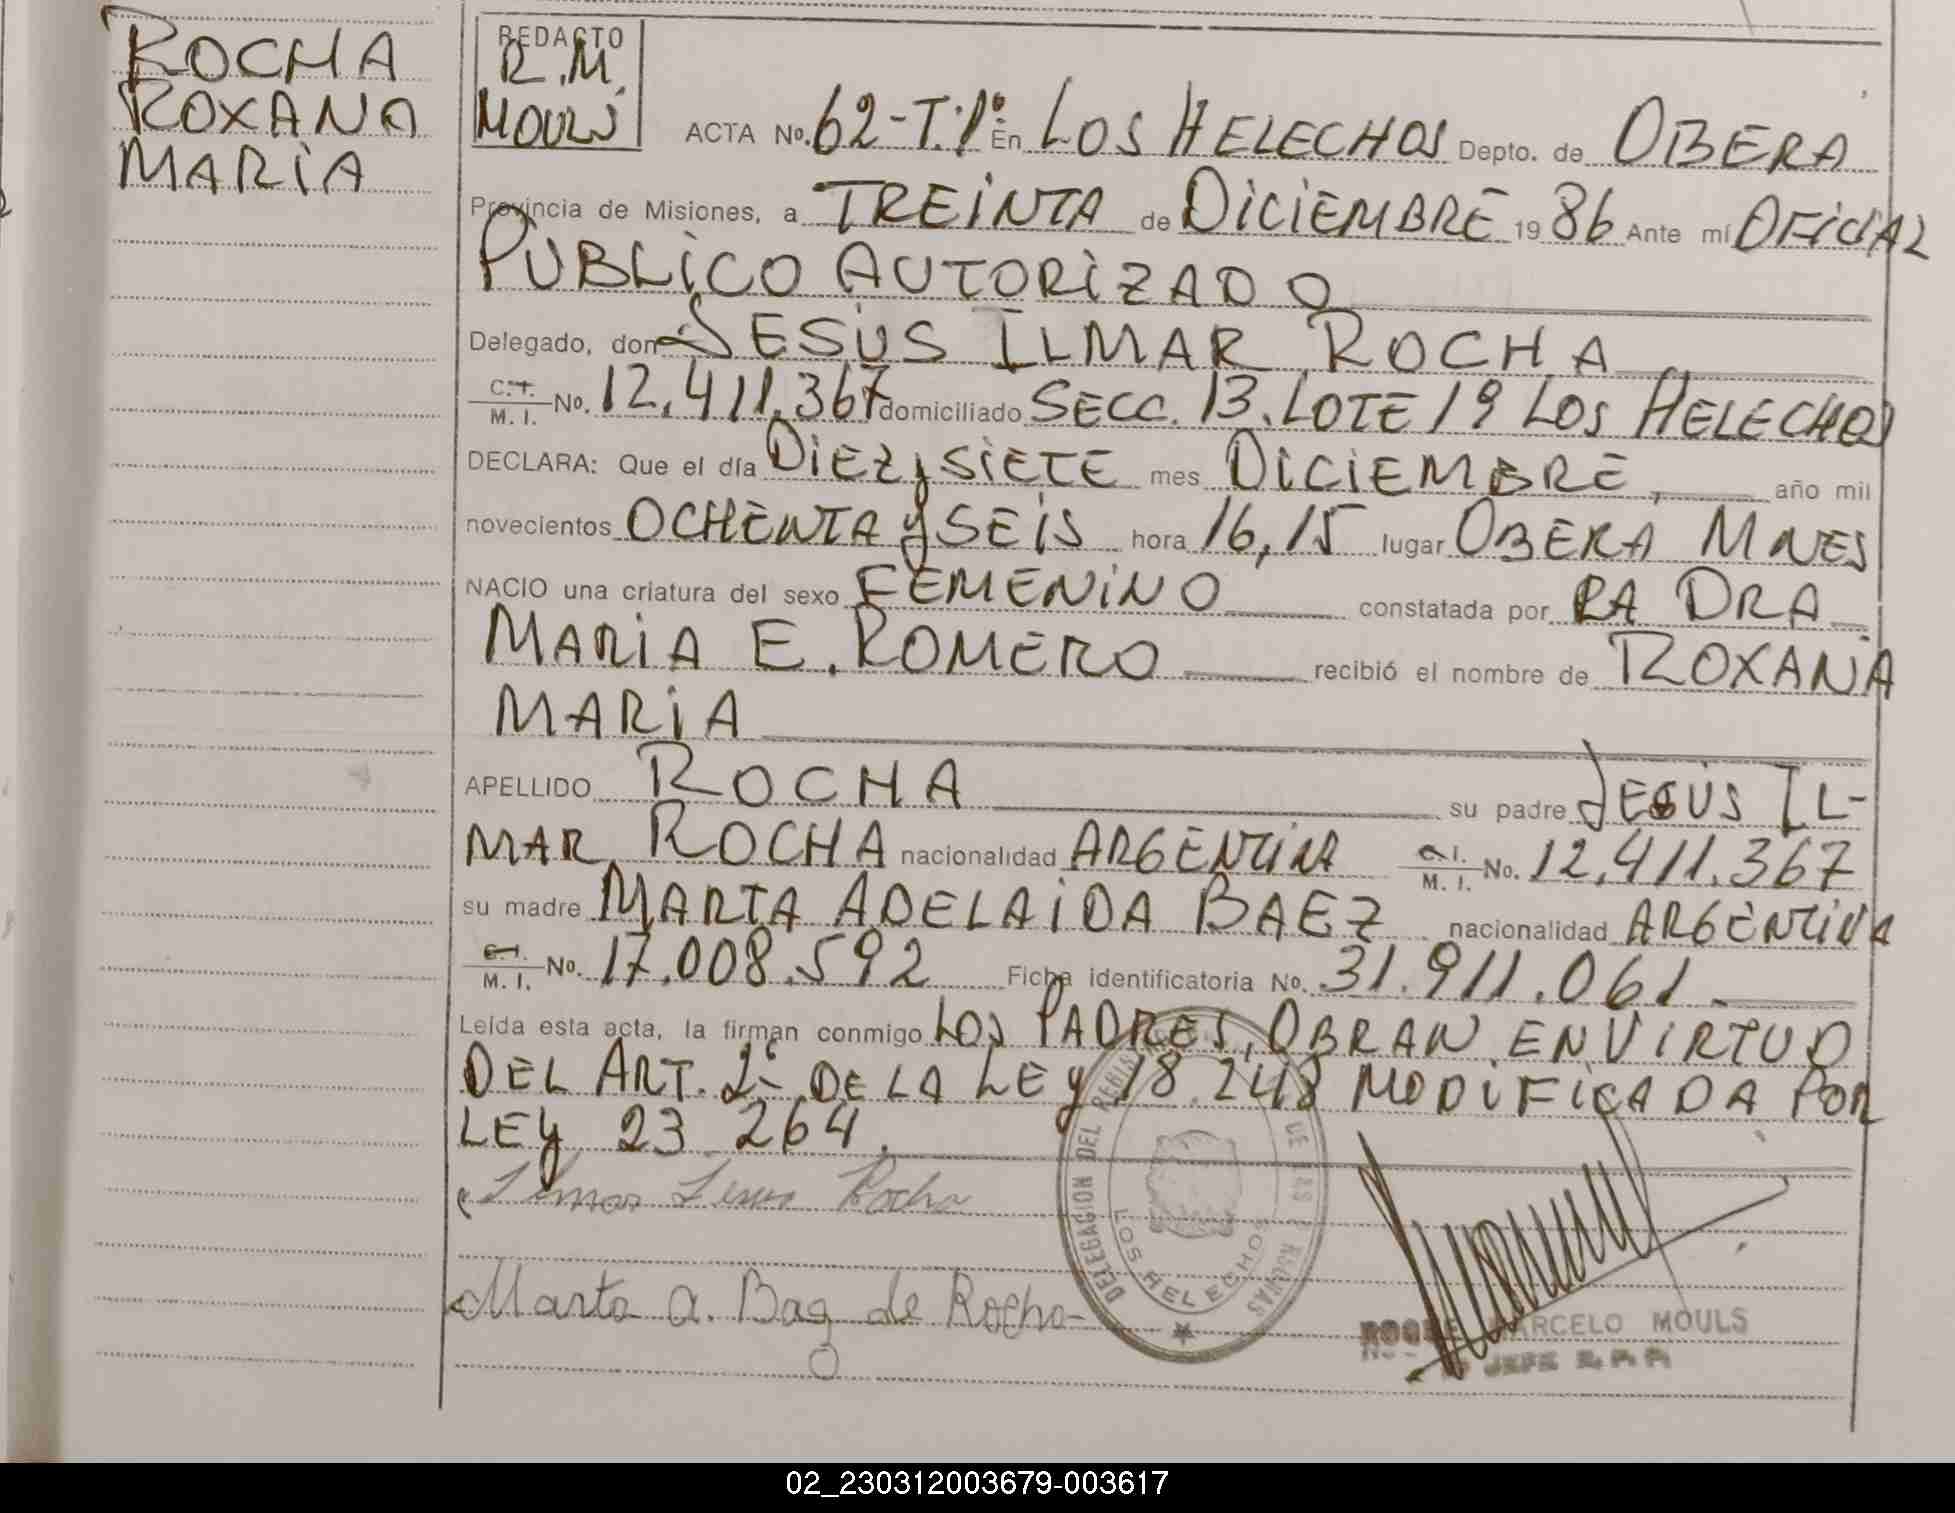 ROCHA
ROXANA
MARIA
REDACTO
R.M.
MOULS
ACTA No. 62-T.1º En LOS HELECHOS Depto. de OBERA
Provincia de Misiones, a TREINTA de DICIEMBRE 19 86 Ante mí OFICIAL
PUBLICO AUTORIZADO
Delegado, don JESUS ILMAR ROCHA
C.I. M. I. No. 12.411.367 domiciliado SECC. 13. LOTE 19 LOS HELECHOS
DECLARA: Que el día DIEZ y SIETE mes DICIEMBRE, año mil
novecientos OCHENTA y SEIS hora 16,15 lugar OBERA MNES
NACIO una criatura del sexo FEMENINO constatada por LA DRA
MARIA E. ROMERO recibió el nombre de ROXANA
MARIA
APELLIDO ROCHA su padre JESUS IL-
MAR ROCHA nacionalidad ARGENTINA C.I. M. I. No. 12.411.367
su madre MARTA ADELAIDA BAEZ nacionalidad ARGENTINA
C.I. M. I. No. 17.008.592 Ficha identificatoria No. 31.911.061
Leída esta acta, la firman conmigo LOS PADRES, OBRAN EN VIRTUD
DEL ART. 2º DE LA LEY 18.248 MODIFICADA POR
LEY 23.264.
Ilmar Jesus Rocha
Marta A. Baez de Rocha
DELEGACION DEL REGISTRO DE LAS PERSONAS
LOS HELECHOS
MARCELO MOULS
JEFE R.P.P.
02_230312003679-003617